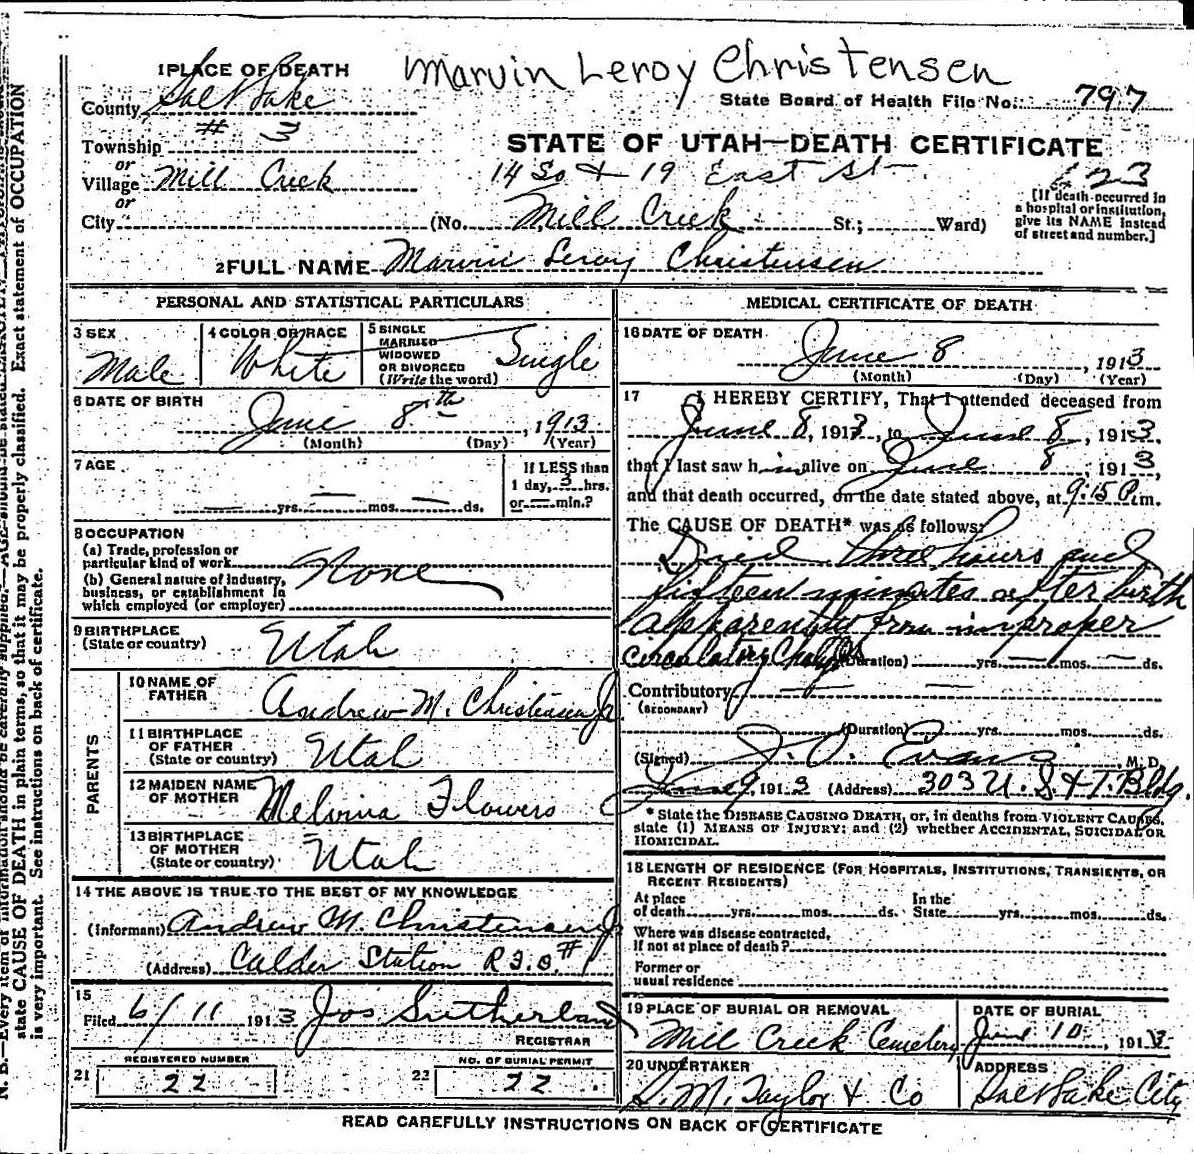 Marvin Leroy Christensen
1 PLACE OF DEATH
County Salt Lake
State Board of Health File No. 797
Township # 3
STATE OF UTAH—DEATH CERTIFICATE
or
Village Mill Creek
14 So & 19 East St
623
or
City (No. Mill Creek St.; Ward)
[If death occurred in
a hospital or institution,
give its NAME instead
of street and number.]
2 FULL NAME Marvin Leroy Christensen
PERSONAL AND STATISTICAL PARTICULARS
3 SEX
Male
4 COLOR OR RACE
White
5 SINGLE
MARRIED
WIDOWED
OR DIVORCED
(Write the word)
Single
6 DATE OF BIRTH
June 8th, 1913
(Month) (Day) (Year)
7 AGE
— yrs. — mos. — ds.
If LESS than
1 day, 3 hrs.
or — min.?
8 OCCUPATION
(a) Trade, profession or
particular kind of work
(b) General nature of industry,
business, or establishment in
which employed (or employer)
None
9 BIRTHPLACE
(State or country)
Utah
PARENTS
10 NAME OF
FATHER
Andrew M. Christensen Jr
11 BIRTHPLACE
OF FATHER
(State or country)
Utah
12 MAIDEN NAME
OF MOTHER
Melvina Flowers
13 BIRTHPLACE
OF MOTHER
(State or country)
Utah
14 THE ABOVE IS TRUE TO THE BEST OF MY KNOWLEDGE
(Informant) Andrew M. Christensen Jr
(Address) Calder Station R.F.D. # 1
15
Filed 6/11 1913 Jos Sutherland
REGISTRAR
REGISTERED NUMBER
21 22
NO. OF BURIAL PERMIT
22 22
MEDICAL CERTIFICATE OF DEATH
16 DATE OF DEATH
June 8, 1913
(Month) (Day) (Year)
17 I HEREBY CERTIFY, That I attended deceased from
June 8, 1913, to June 8, 1913,
that I last saw him alive on June 8, 1913,
and that death occurred, on the date stated above, at 9:15 P.m.
The CAUSE OF DEATH* was as follows:
Died three hours and
fifteen minutes after birth
apparently from improper
circulatory changes
(Duration) yrs. — mos. — ds.
Contributory —
(SECONDARY)
(Duration) yrs. mos. ds.
(Signed) J. O. Evans, M. D.
June 9, 1913 (Address) 303 U. S. & T. Bldg.
* State the DISEASE CAUSING DEATH, or, in deaths from VIOLENT CAUSES,
state (1) MEANS OF INJURY: and (2) whether ACCIDENTAL, SUICIDAL OR
HOMICIDAL.
18 LENGTH OF RESIDENCE (FOR HOSPITALS, INSTITUTIONS, TRANSIENTS, OR
RECENT RESIDENTS)
At place
of death yrs. mos. ds.
In the
State yrs. mos. ds.
Where was disease contracted,
if not at place of death?
Former or
usual residence
19 PLACE OF BURIAL OR REMOVAL
Mill Creek Cemetery
DATE OF BURIAL
June 10, 1913
20 UNDERTAKER
S. M. Taylor & Co
ADDRESS
Salt Lake City
READ CAREFULLY INSTRUCTIONS ON BACK OF CERTIFICATE
N. B.—Every item of information should be carefully supplied. AGE should be stated EXACTLY.
state CAUSE OF DEATH in plain terms, so that it may be properly classified. Exact statement of OCCUPATION
is very important. See instructions on back of certificate.